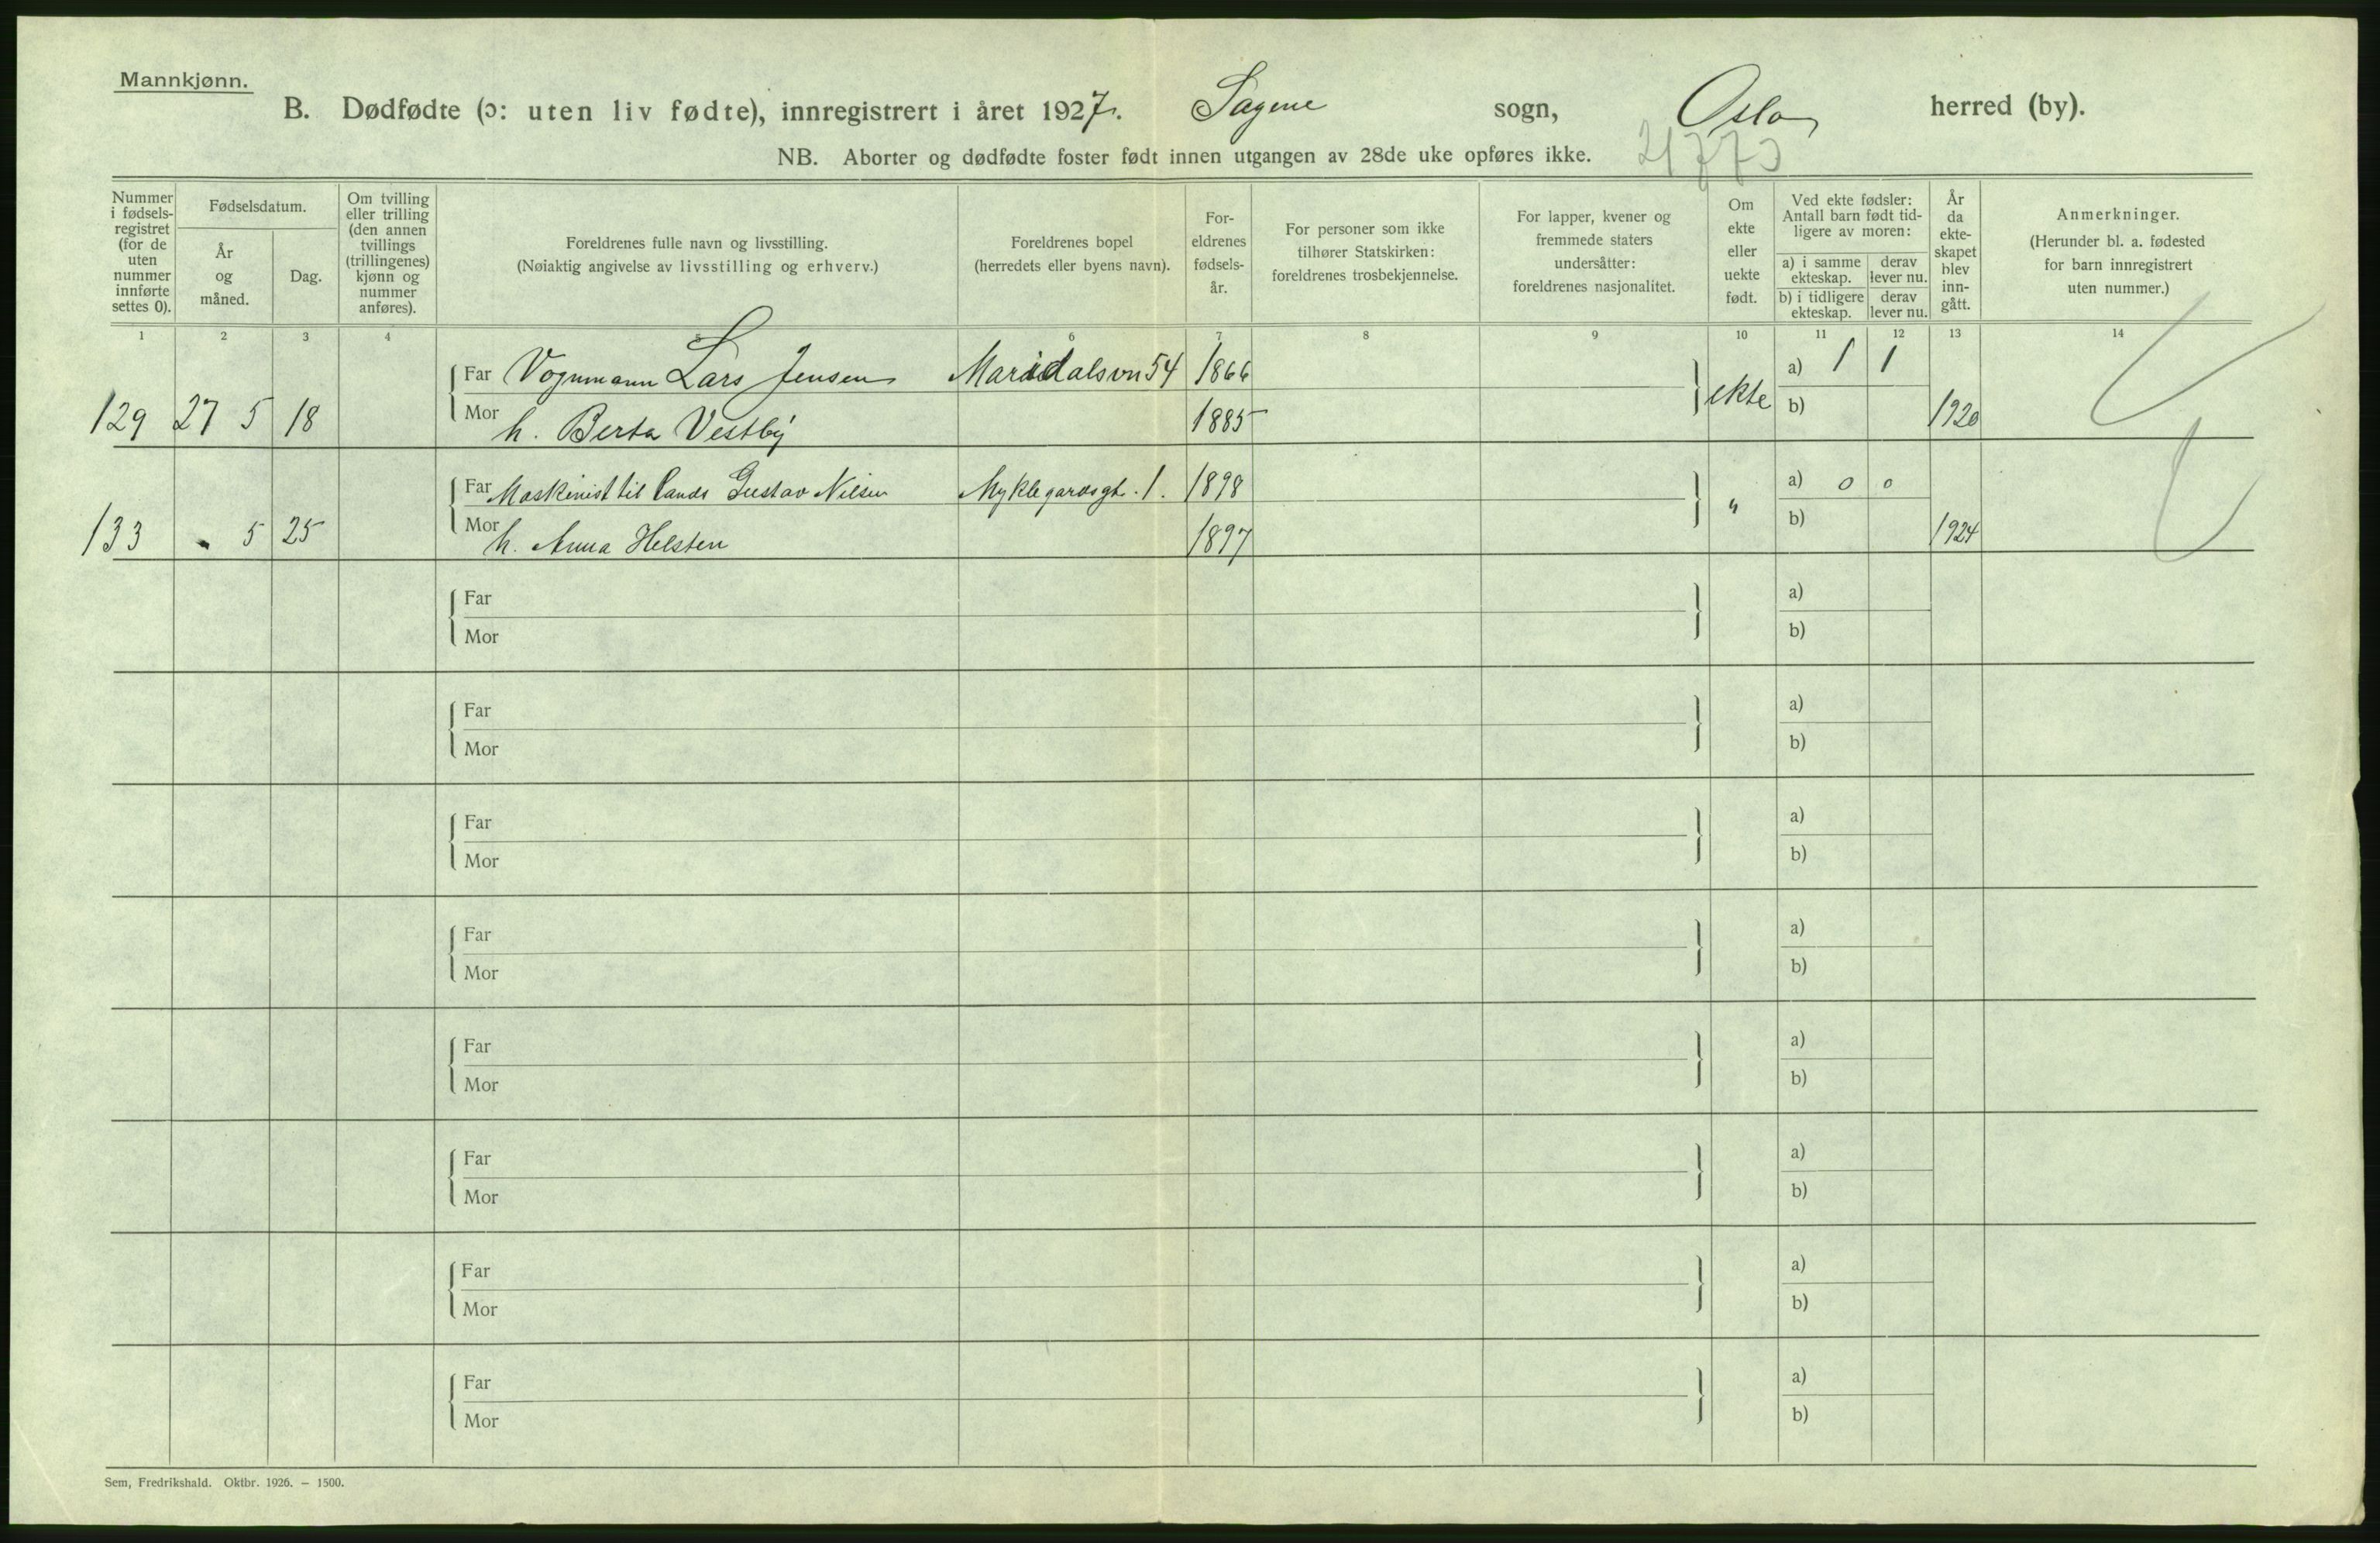 Mannkjønn.
B. Dødfødte (ɔ: uten liv fødte), innregistrert i året 1927. Sagene sogn, Oslo herred (by).
NB. Aborter og dødfødte foster født innen utgangen av 28de uke opføres ikke.
Nummer i fødsels- registret (for de uten nummer innførte settes 0).
Fødselsdatum.
År og måned.
Dag.
Om tvilling eller trilling (den annen tvillings (trillingenes) kjønn og nummer anføres).
Foreldrenes fulle navn og livsstilling.
(Nøiaktig angivelse av livsstilling og erhverv.)
Foreldrenes bopel
(herredets eller byens navn).
For- eldrenes fødsels- år.
For personer som ikke tilhører Statskirken: foreldrenes trosbekjennelse.
For lapper, kvener og fremmede staters undersåtter: foreldrenes nasjonalitet.
Om ekte eller uekte født.
Ved ekte fødsler: Antall barn født tid- ligere av moren:
a) i samme ekteskap.
derav lever nu.
b) i tidligere ekteskap.
derav lever nu.
År da ekte- skapet blev inn- gått.
Anmerkninger.
(Herunder bl. a. fødested for barn innregistrert uten nummer.)
1 2 3 4 5 6 7 8 9 10 11 12 13 14
Far Vognmann Lars Jensen Maridalsvn 54 1866 a) 1 1
129 27 5 18 Mor h. Berta Vestby 1885 ekte b) 1920
Far Maskinist til lands Gustav Nilsen Myklegardsgt. 1. 1898 a) 0 0
133 " 5 25 Mor h. Anna Helsten 1897 " b) 1924
Far a)
Mor b)
Far a)
Mor b)
Far a)
Mor b)
Far a)
Mor b)
Far a)
Mor b)
Far a)
Mor b)
Far a)
Mor b)
Far a)
Mor b)
Sem, Fredrikshald. Oktbr. 1926. – 1500.